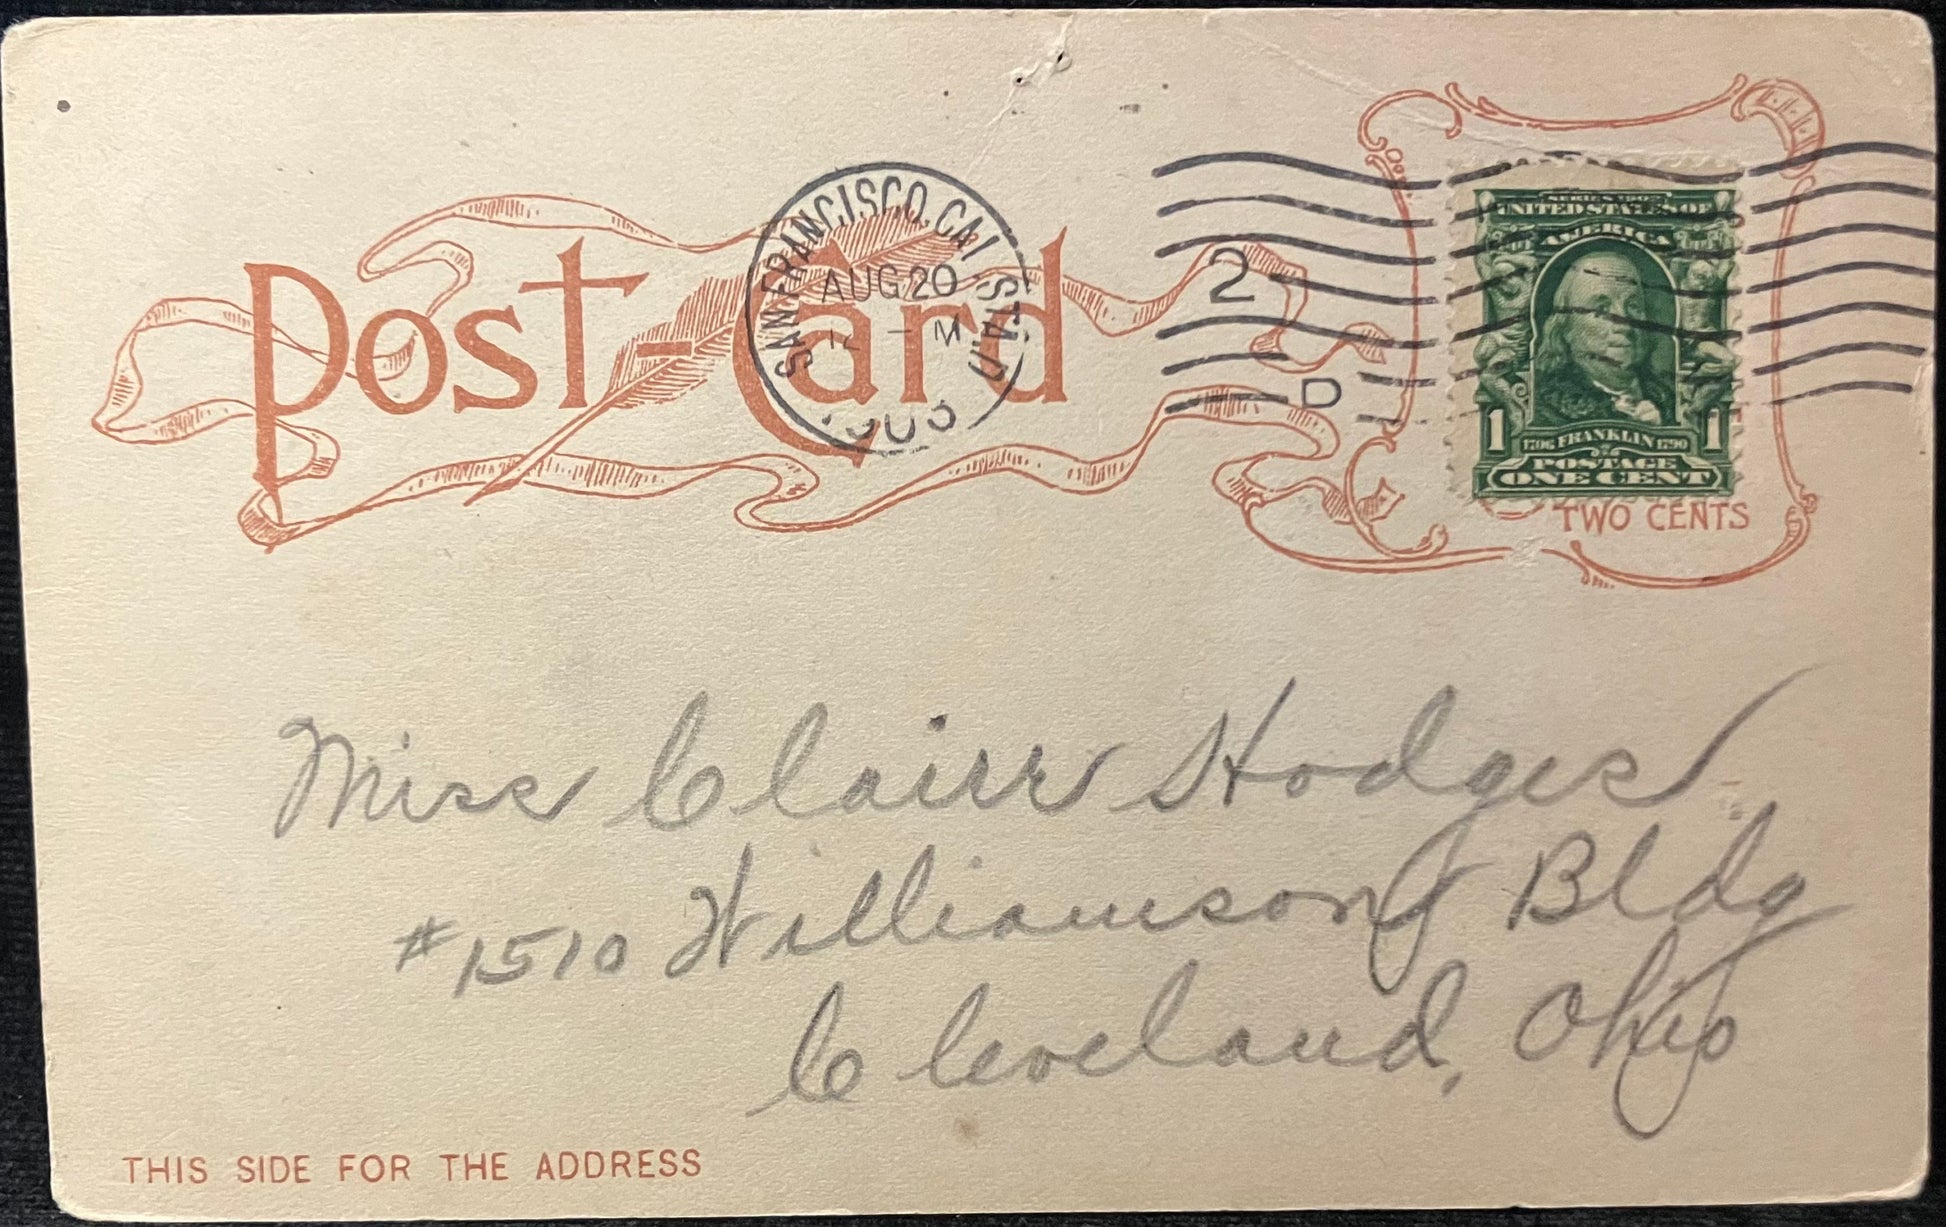 Post-Card
SAN FRANCISCO, CAL. STA. D
AUG 20
12 - M
2
D
SERIES 1902
UNITED STATES OF
AMERICA
1 1706 FRANKLIN 1790 1
POSTAGE
ONE CENT
TWO CENTS
Miss Claire Hodges
#1510 Williamson Bldg
Cleveland, Ohio
THIS SIDE FOR THE ADDRESS